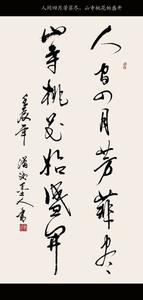 人间四月芳菲尽，山寺桃花始盛开
人间四月芳菲尽
山寺桃花始盛开
壬辰年